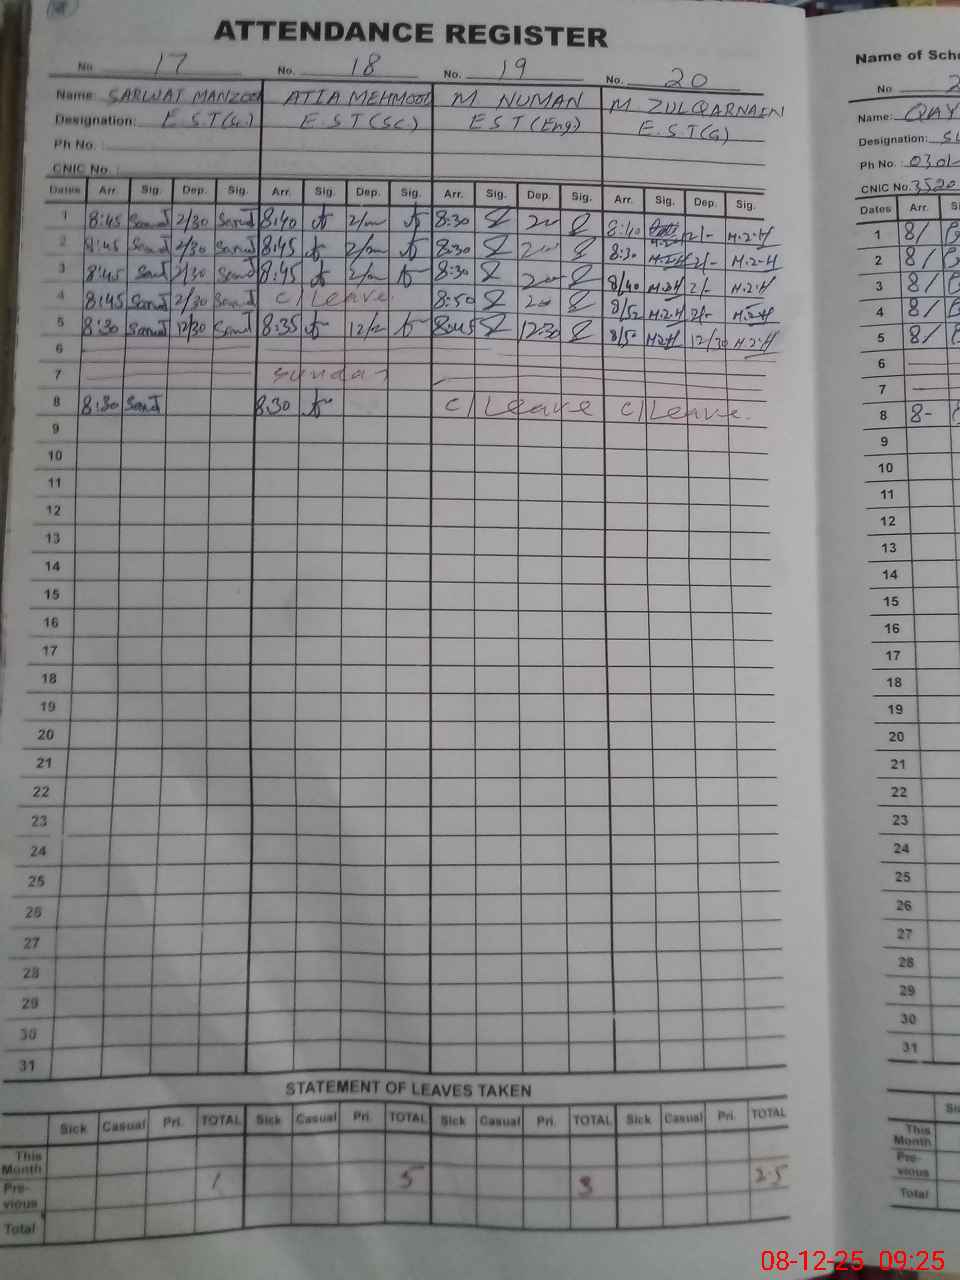 ATTENDANCE REGISTER
No. 17 No. 18 No. 19 No. 20
Name: SARWAT MANZOOR ATIA MEHMOOD M NUMAN M ZULQARNAIN
Designation: E.S.T(Sc) E.S.T(SC) EST(Eng) E.S.T(G)
Ph No. :
CNIC No. :
Dates Arr. Sig. Dep. Sig. Arr. Sig. Dep. Sig. Arr. Sig. Dep. Sig. Arr. Sig. Dep. Sig.
1 8:45 2/30 8:40 8:30 8:40 2/-
2 8:45 2/30 8:45 8:30 8:30 2/-
3 8:45 2/30 8:45 8:30 8/40 2/-
4 8:45 2/30 C/Leave. 8:50 8/52 2/-
5 8:30 12/30 8:35 8:45 12:30 8/50 12/30
6
7 Sunday
8 8:30 8:30 C/Leave C/Leave.
9
10
11
12
13
14
15
16
17
18
19
20
21
22
23
24
25
26
27
28
29
30
31
STATEMENT OF LEAVES TAKEN
Sick Casual Pri. TOTAL Sick Casual Pri. TOTAL Sick Casual Pri. TOTAL Sick Casual Pri. TOTAL
This
Month
Pre-
vious 1 5 3 2.5
Total
Name of Sch
No 2
Name: QAY
Designation: S
Ph No. : 0301-
CNIC No. 3520
Dates Arr. Si
1 8/
2 8/
3 8/
4 8/
5 8/
6
7
8 8-
9
10
11
12
13
14
15
16
17
18
19
20
21
22
23
24
25
26
27
28
29
30
31
Si
This
Month
Pre-
vious
Total
08-12-25 09:25